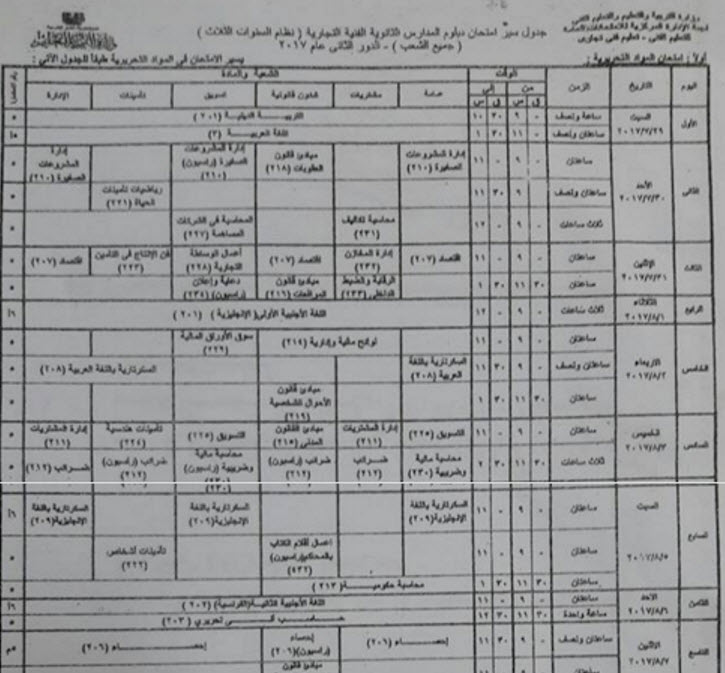 وزارة التربية والتعليم والتعليم الفني
لجنة الإدارة المركزية
للتعليم الفنى - تعليم فنى تجارى
جدول سير امتحان دبلوم المدارس الثانوية الفنية التجارية ( نظام السنوات الثلاث )
( جميع الشعب ) - الدور الثانى عام ٢٠١٧
أولاً : امتحان المواد التحريرية :
يسير الامتحان في المواد التحريرية طبقاً للجدول الآتي :
اليوم التاريخ الزمن الوقت الشعبة والمادة
من إلى
ق س ق س عامة مشتريات شئون قانونية تسويق تأمينات الإدارة
الأول السبت ٢٠١٧/٧/٢٩ ساعة ونصف - ٩ ٣٠ ١٠ التربية الدينية (٢٠١)
ساعتان ونصف - ١١ ٣٠ ١ اللغة العربية (٢)
الثانى الأحد ٢٠١٧/٧/٣٠ ساعتان - ٩ - ١١ إدارة المشروعات الصغيرة (٢١٠) مبادئ قانون العقوبات (٢١٨) إدارة المشروعات الصغيرة (راسبون) (٢١٠) إدارة المشروعات الصغيرة (٢١٠)
ساعتان ونصف - ٩ ٣٠ ١١ رياضيات تأمينات الحياة (٢٢١)
ثلاث ساعات - ٩ - ١٢ محاسبة تكاليف (٢٣١) المحاسبة في الشركات المساهمة (٢٢٧)
الثالث الإثنين ٢٠١٧/٧/٣١ ساعتان - ٩ - ١١ اقتصاد (٢٠٧) إدارة المخازن (٢٣٢) اقتصاد (٢٠٧) أعمال الوساطة التجارية (٢٢٨) فن الإنتاج في التأمين (٢٢٣) اقتصاد (٢٠٧)
ساعتان ٣٠ ١١ ٣٠ ١ الرقابة والضبط الداخلى (٢٣٣) مبادئ قانون المرافعات (٢١٦) دعاية وإعلان (راسبون)
الرابع الثلاثاء ٢٠١٧/٨/١ ثلاث ساعات - ٩ - ١٢ اللغة الأجنبية الأولى (الإنجليزية) (٢٠١)
الخامس الاربعاء ٢٠١٧/٨/٢ ساعتان - ٩ - ١١ لوائح مالية وإدارية (٢١٤) سوق الأوراق المالية (٢٢٩)
ساعتان ونصف - ٩ ٣٠ ١١ السكرتارية باللغة العربية (٢٠٨) السكرتارية باللغة العربية (٢٠٨)
ساعتان ٣٠ ١١ ٣٠ ١ مبادئ قانون الأحوال الشخصية (٢١٩)
السادس الخميس ٢٠١٧/٨/٣ ساعتان - ٩ - ١١ التسويق (٢٢٥) إدارة المشتريات (٢١١) مبادئ القانون المدنى (٢١٥) التسويق (٢٢٥) تأمينات هندسية (٢٢٤) إدارة المشتريات (٢١١)
ثلاث ساعات ٣٠ ١١ ٣٠ ٢ محاسبة مالية وضريبية (٢٣٠) ضرائب (٢١٢) ضرائب (راسبون) (٢١٢) محاسبة مالية وضريبية (راسبون) (٢٣٠) ضرائب (راسبون) (٢١٢) ضرائب (٢١٢)
السابع السبت ٢٠١٧/٨/٥ ساعتان - ٩ - ١١ السكرتارية باللغة الإنجليزية (٢٠٩) السكرتارية باللغة الإنجليزية (٢٠٩) السكرتارية باللغة الإنجليزية (٢٠٩)
ساعتان - ٩ - ١١ اعمال أقلام الكتاب بالمحاكم (راسبون) تأمينات أشخاص (٢٢٢)
ساعتان ٣٠ ١١ ٣٠ ١ محاسبة حكومية (٢١٣)
الثامن الاحد ٢٠١٧/٨/٦ ساعتان - ٩ - ١١ اللغة الأجنبية الثانية (الفرنسية) (٢٠٢)
ساعة واحدة ٣٠ ١١ ٣٠ ١٢ حاسب آلى تحريري (٢٠٣)
التاسع الإثنين ٢٠١٧/٨/٧ ساعتان ونصف - ٩ ٣٠ ١١ إحصاء (٢٠٦) إحصاء (راسبون) (٢٠٦) إحصاء (٢٠٦)
ساعتان مبادئ قانون